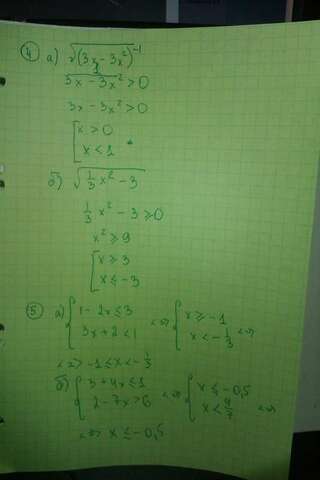 ④ а) √(3x - 3x²)⁻¹
1/(3x - 3x²) > 0
3x - 3x² > 0
[ x > 0
x < 1
б) √(1/3 x² - 3)
1/3 x² - 3 ≥ 0
x² ≥ 9
[ x ≥ 3
x ≤ -3
⑤ а) { 1 - 2x ≤ 3 <=> { x ≥ -1
3x + 2 < 1 x < -1/3 <=>
<=> -1 ≤ x < -1/3
б) { 3 + 4x ≤ 1 <=> { x ≤ -0,5
2 - 7x > 6 x < 4/7 <=>
<=> x ≤ -0,5